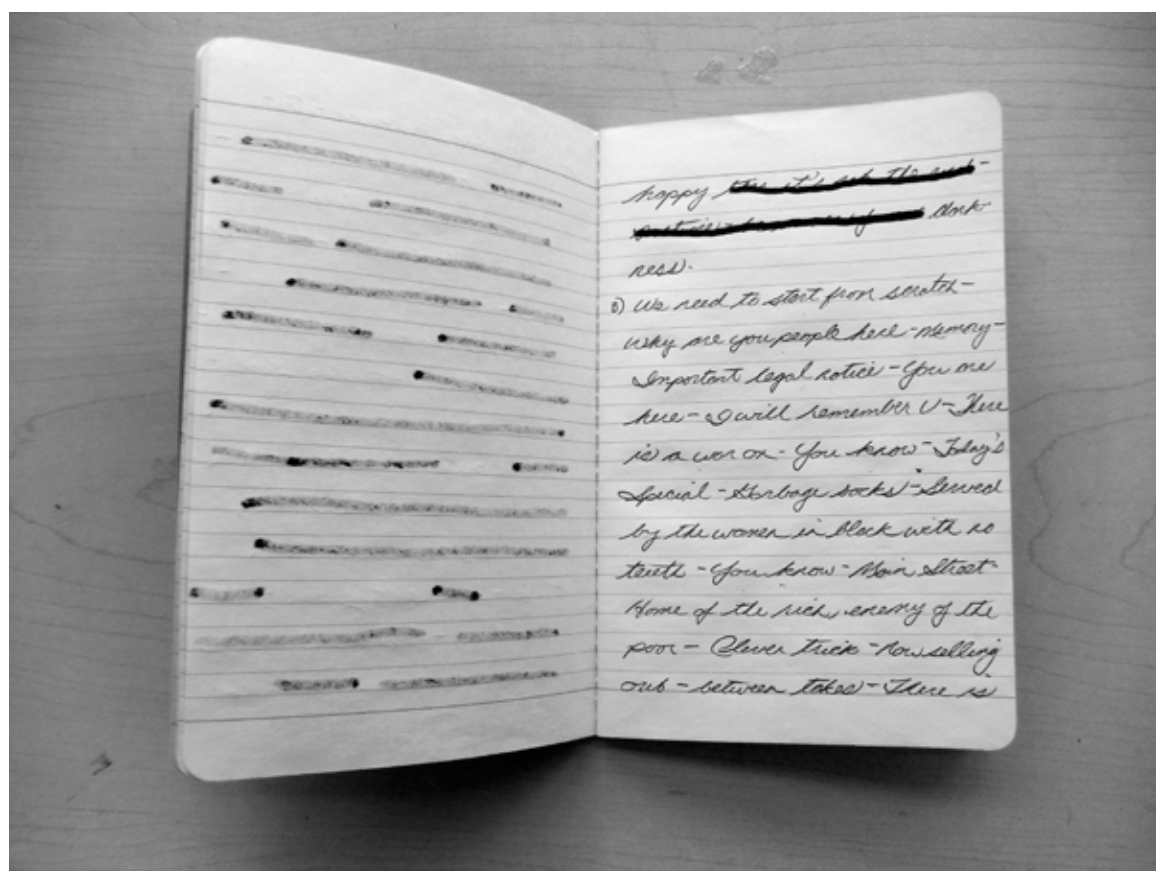 happy
dark-
ness.
0) We need to start from scratch-
Why are you people here - Memory-
Important legal notice - You are
here - I will remember U - There
is a war on - You know - Today's
Special - Garbage socks - Served
by the women in black with no
teeth - You know - Main Street-
Home of the rich, enemy of the
poor - Clever trick - Now selling
out - between takes - There is